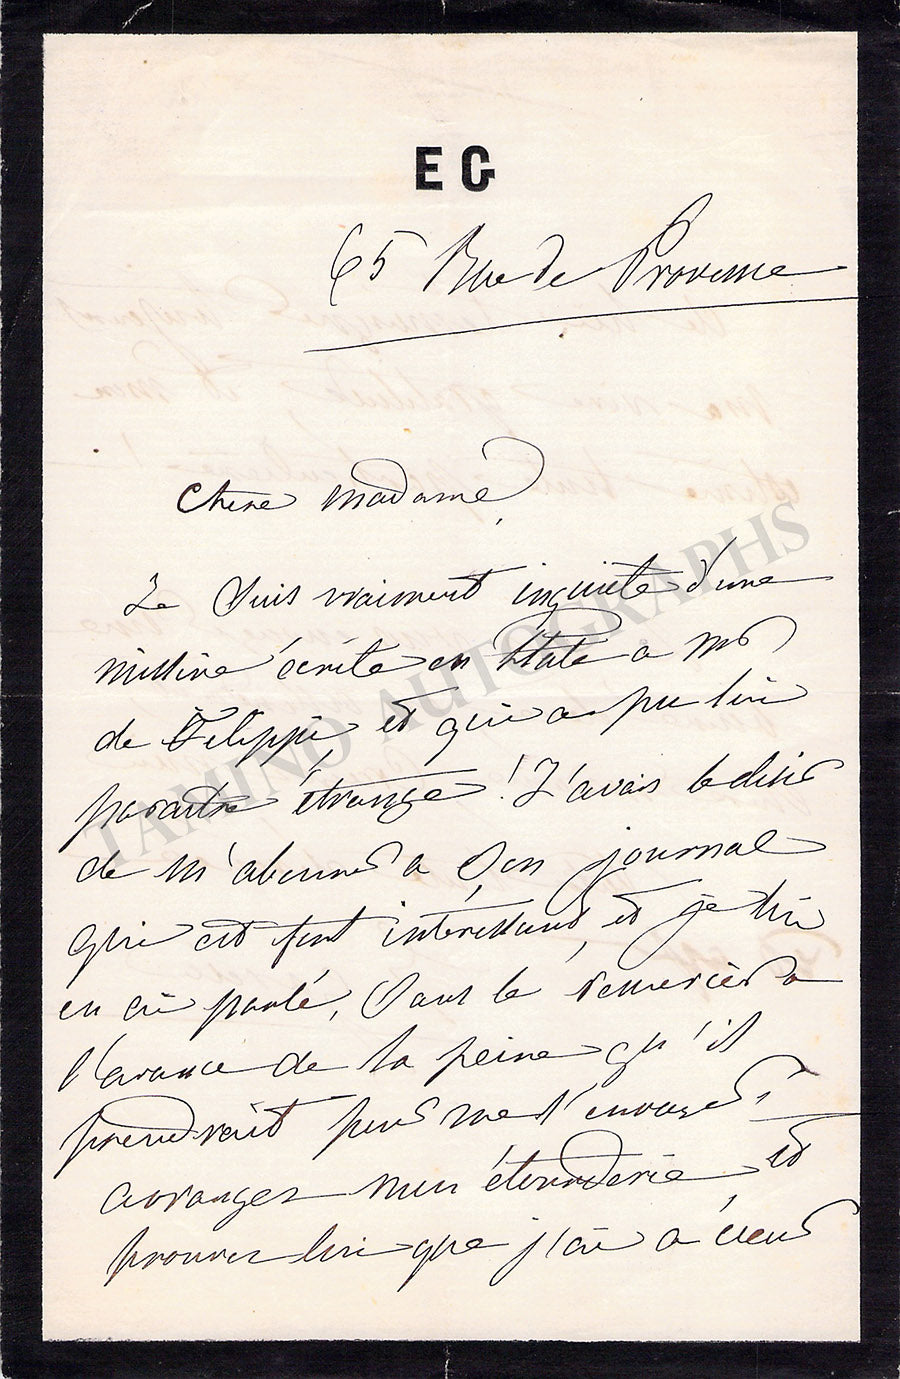 EG
65 Rue de Provence
Chere Madame,
Je suis vraiment inquiete d'une
missive écrite en hâte a Mr
de Filippi, et qui a pu lui
paraitre étrange ! J'avais le desir
de m'abonner a son journal
qui est fort intéressant, et je lui
en ai parlé, sans le remercier a
l'avance de la peine qu'il
prendrait pour me l'envoyer,
arrangez mon étourderie et
prouvez lui que j'ai a coeur
TAMINO AUTOGRAPHS